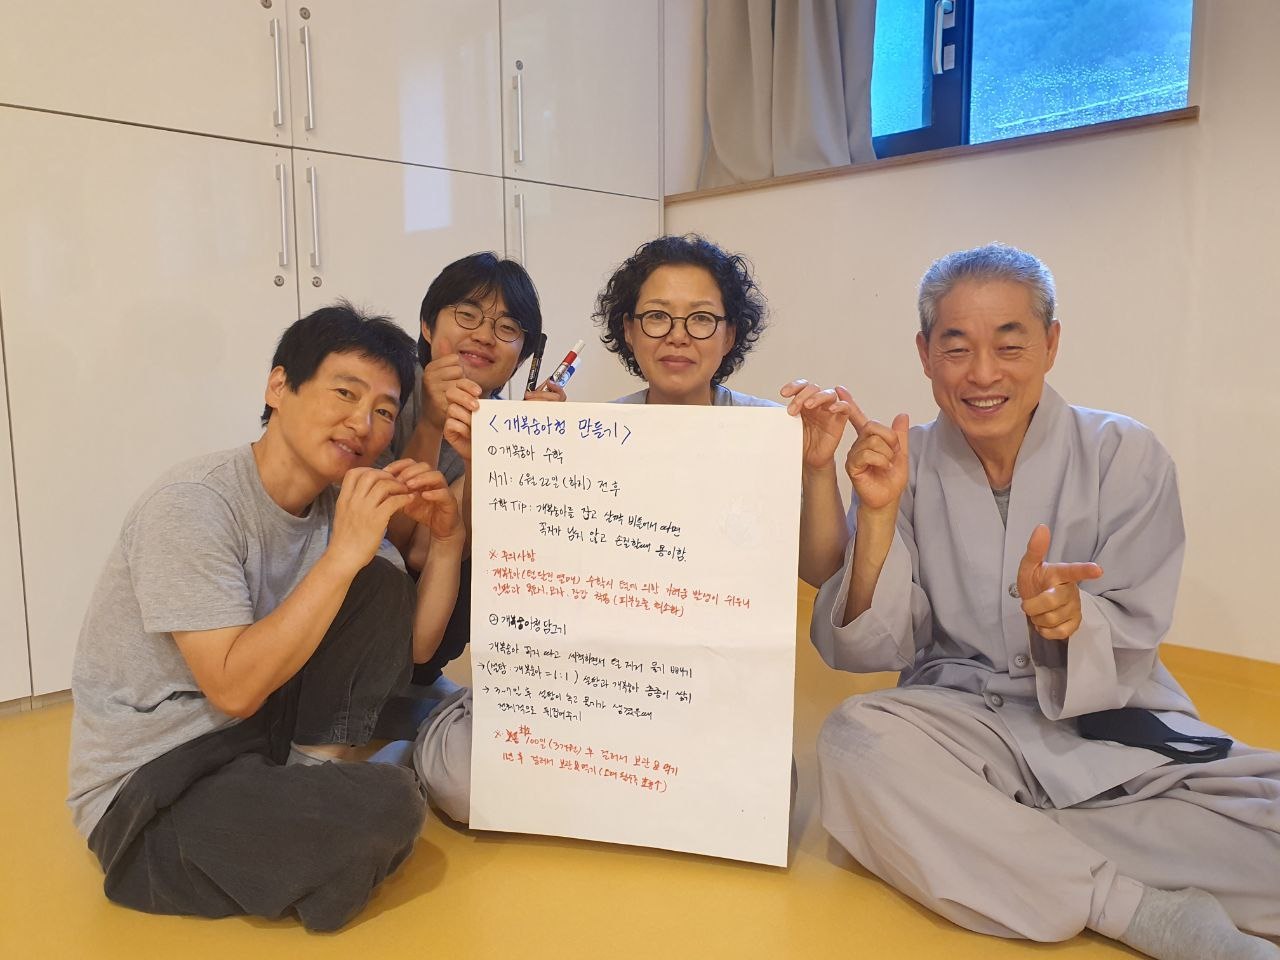 < 개복숭아청 만들기 >
① 개복숭아 수확
시기 : 6월 22일 (하지) 전후
수확 Tip : 개복숭아를 잡고 살짝 비틀어서 따면
꼭지가 남지 않고 손질할때 용이함.
※ 주의사항
: 개복숭아 (털달린 열매) 수확시 털에 의한 가려움 발생이 쉬우니
모자, 장갑 착용 (피부노출 최소화)
② 개복숭아청 담그기
개복숭아 꼭지 따고 세척하면서 털 제거 물기 빼기
→ (설탕 : 개복숭아 = 6 : 1) 설탕과 개복숭아 층층이 쌓기
→ 3~7일 후 설탕이 녹고 물기가 생겼을때
전체적으로 뒤집어주기
※ 최소 100일 (3개월) 후 걸러서 보관 & 먹기
1년 후 걸러서 보관 & 먹기 (오래 될수록 효능↑)